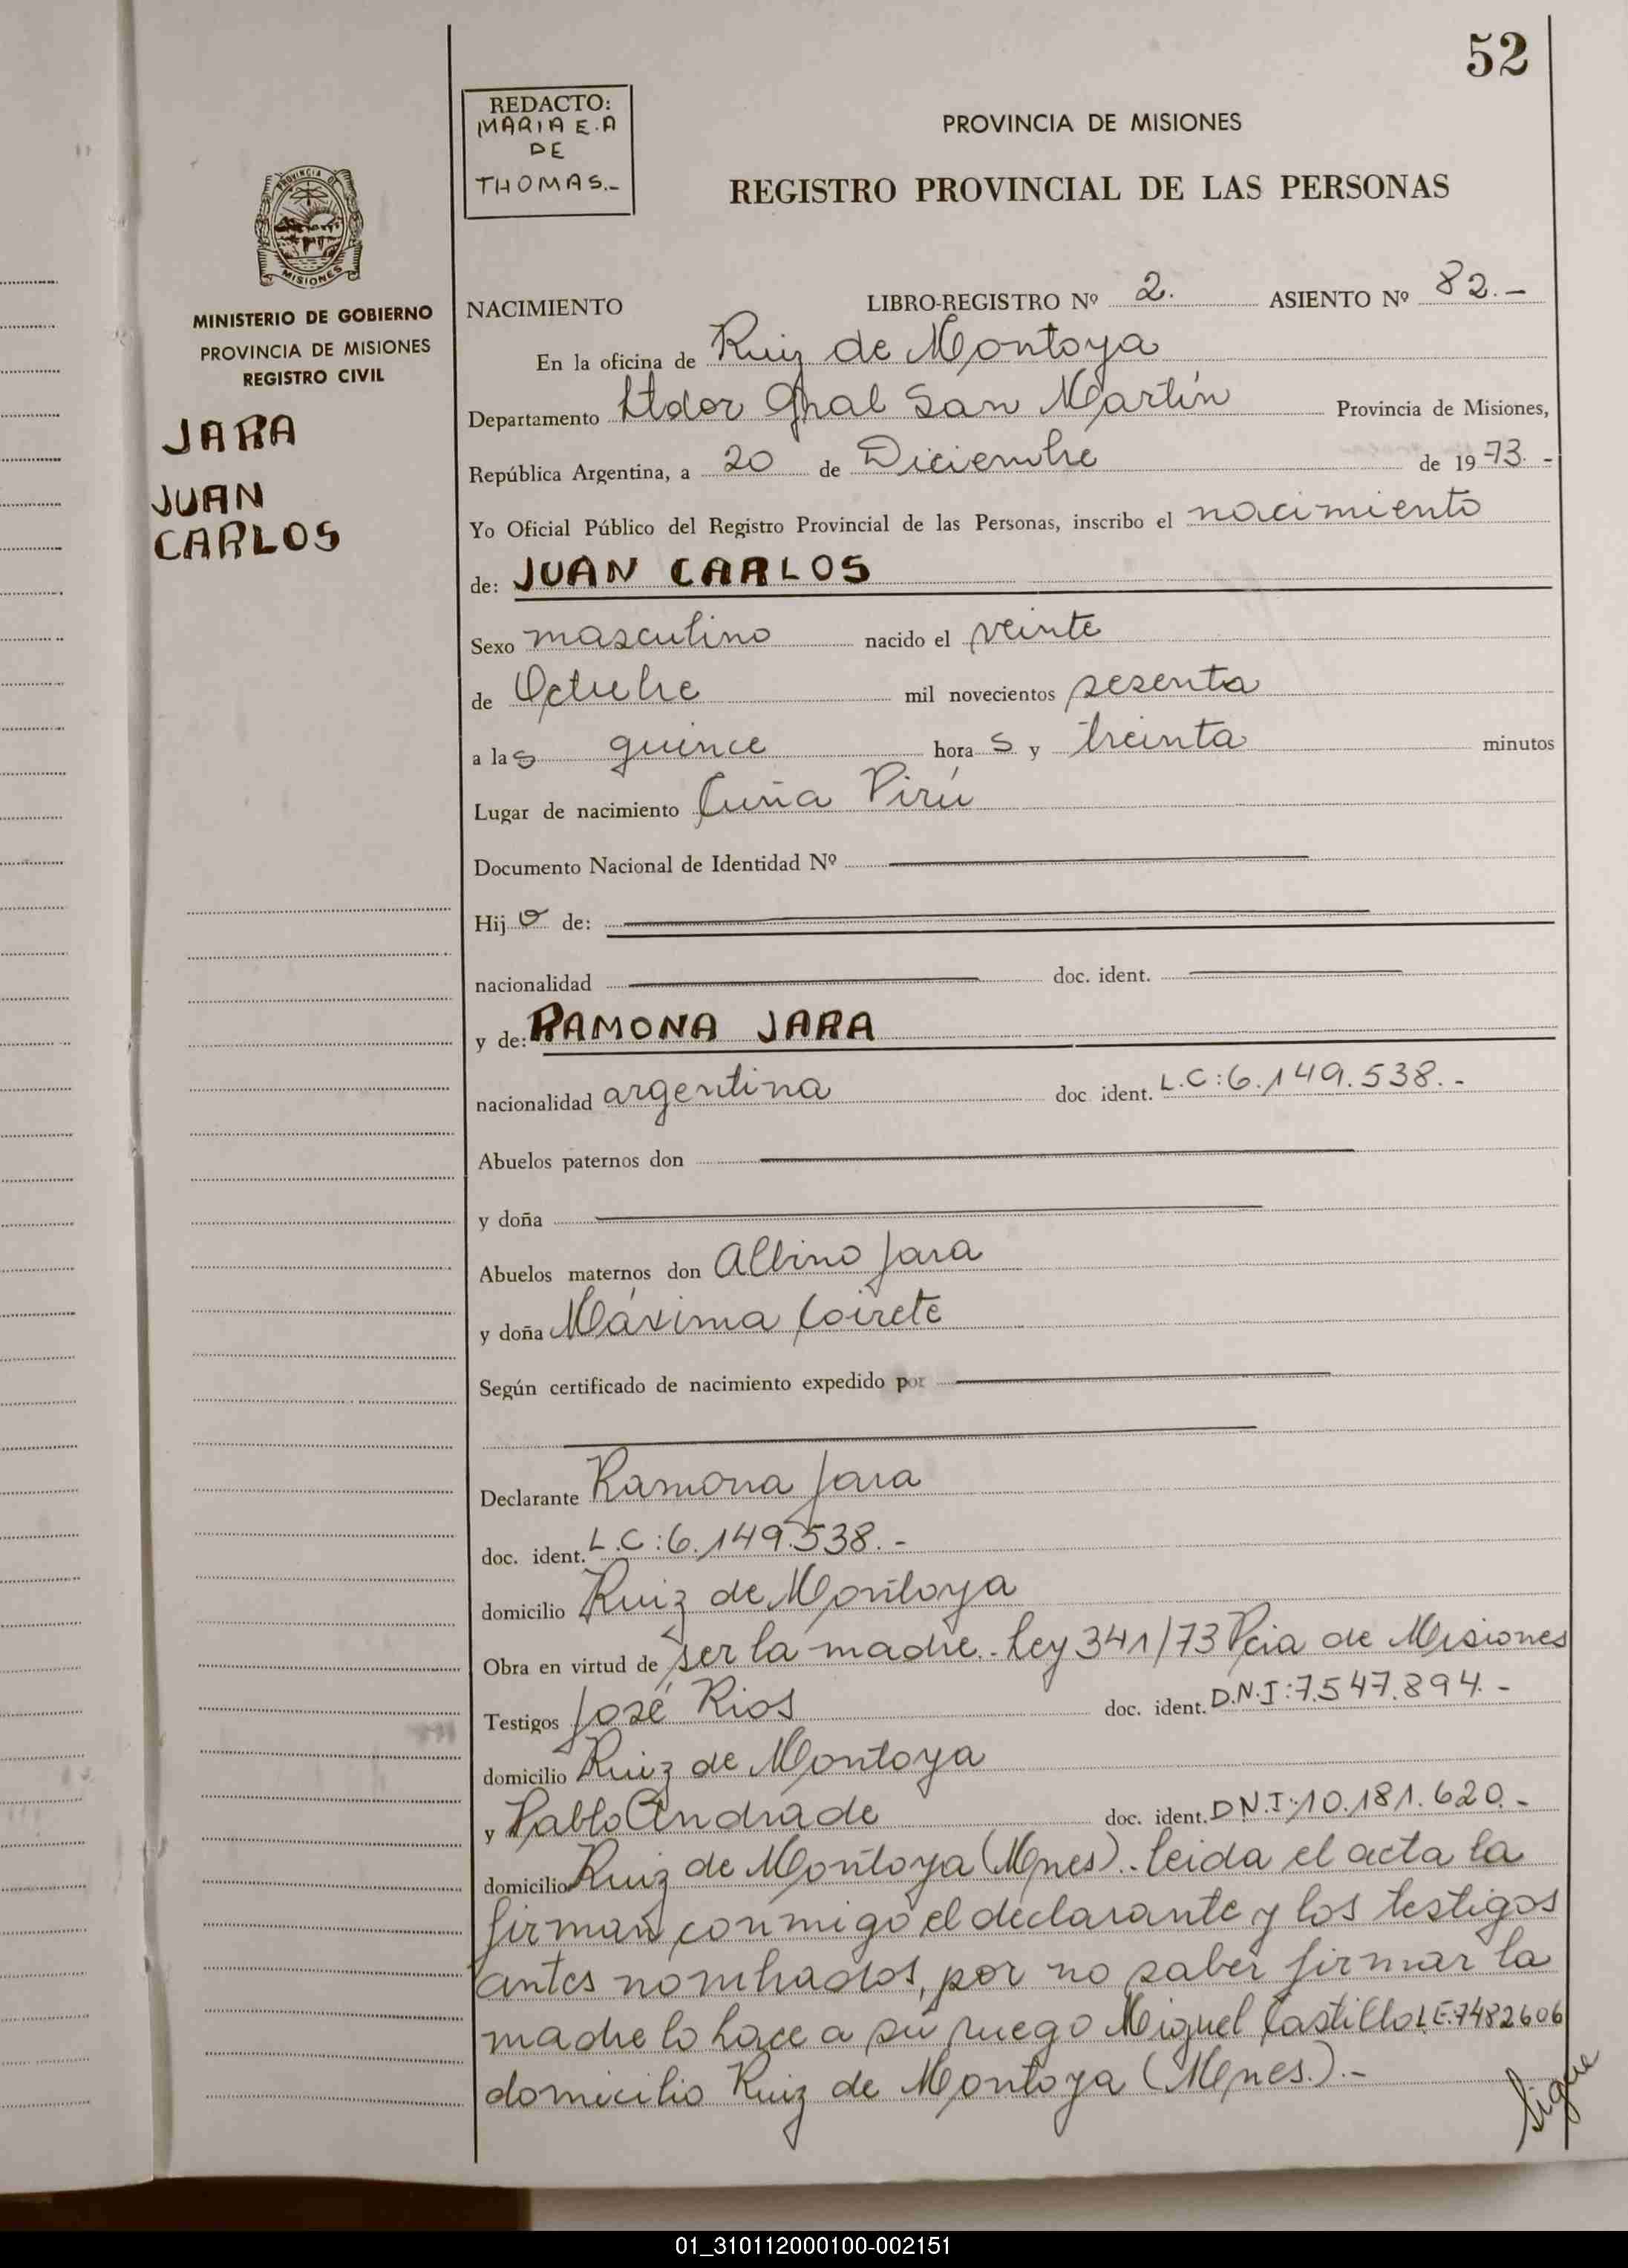 52
REDACTO:
MARIA E. A
DE
THOMAS.-
PROVINCIA DE MISIONES
REGISTRO PROVINCIAL DE LAS PERSONAS
PROVINCIA DE
MISIONES
MINISTERIO DE GOBIERNO
PROVINCIA DE MISIONES
REGISTRO CIVIL
JARA
JUAN
CARLOS
NACIMIENTO LIBRO-REGISTRO Nº 2. ASIENTO Nº 82.-
En la oficina de Ruiz de Montoya
Departamento Ltdor Gral San Martín Provincia de Misiones,
República Argentina, a 20 de Diciembre de 1973.-
Yo Oficial Público del Registro Provincial de las Personas, inscribo el nacimiento
de: JUAN CARLOS
Sexo masculino nacido el veinte
de Octubre mil novecientos sesenta
a las quince horas y treinta minutos
Lugar de nacimiento Cuña Pirú
Documento Nacional de Identidad Nº
Hijo de:
nacionalidad doc. ident.
y de: RAMONA JARA
nacionalidad argentina doc ident. L.C:6.149.538.-
Abuelos paternos don
y doña
Abuelos maternos don Albino Jara
y doña Máxima Coirete
Según certificado de nacimiento expedido por
Declarante Ramona Jara
doc. ident. L.C:6.149.538.-
domicilio Ruiz de Montoya
Obra en virtud de ser la madre.- Ley 341/73 Pcia de Misiones
Testigos José Rios doc. ident. D.N.I:7.547.894.-
domicilio Ruiz de Montoya
y Pablo Andrade doc. ident. D.N.I:10.181.620.-
domicilio Ruiz de Montoya (Mnes).- leida el acta la
firman conmigo el declarante y los testigos
antes nombrados, por no saber firmar la
madre lo hace a su ruego Miguel Castillo L.E.7482606
domicilio Ruiz de Montoya (Mnes.).-
Sigue
01_310112000100-002151